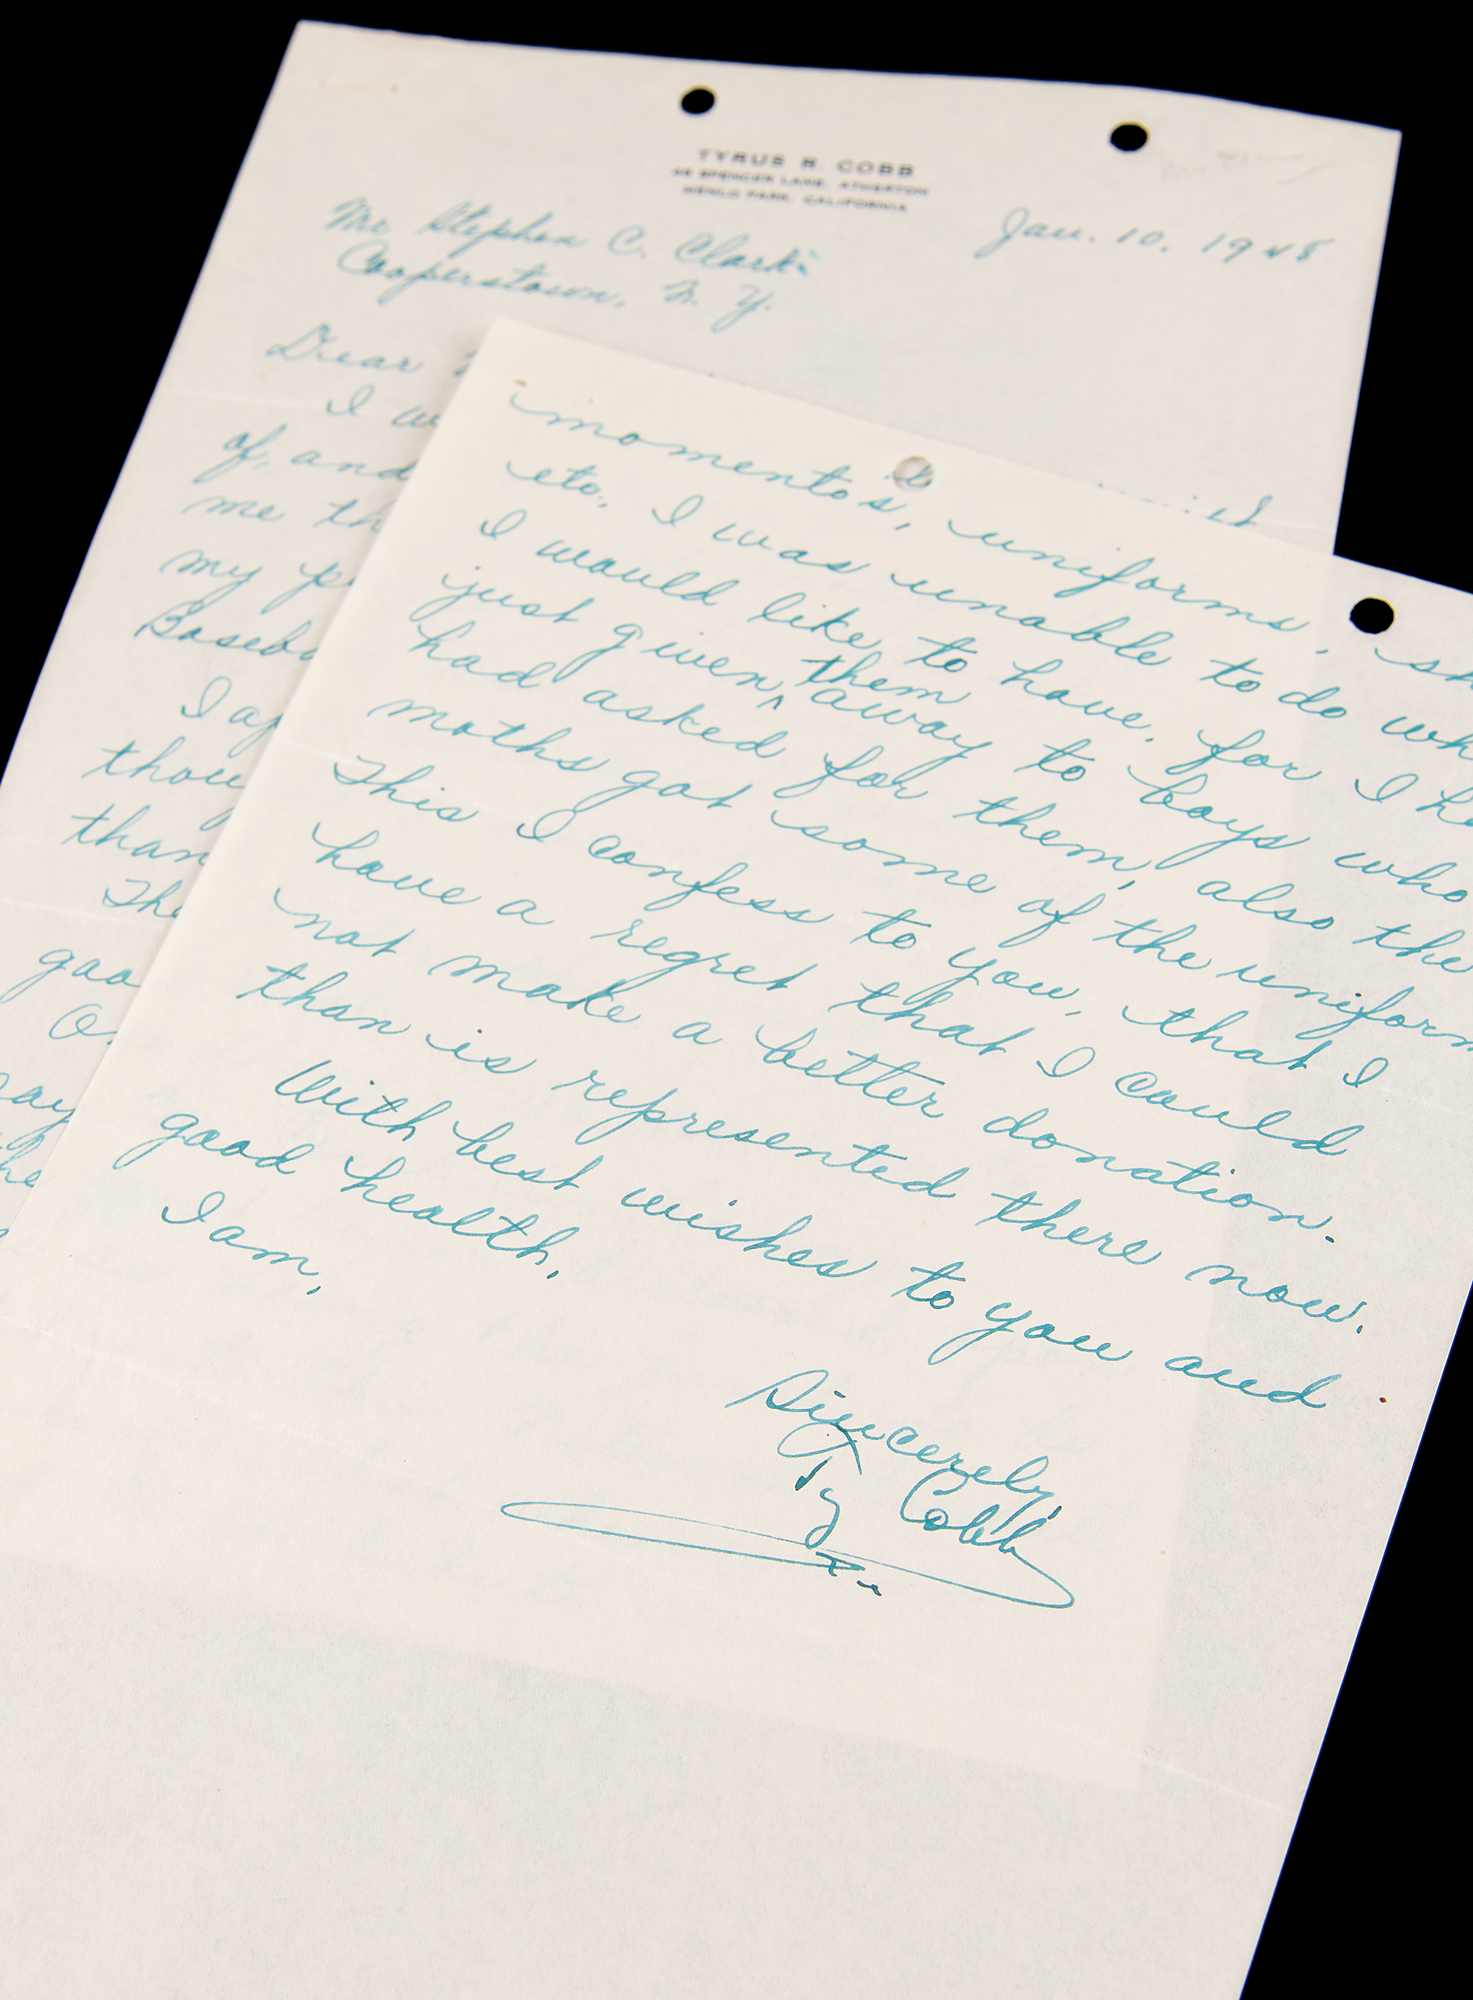 TYRUS R. COBB
48 SPENCER LANE, ATHERTON
MENLO PARK, CALIFORNIA
Jan. 10. 1945
Mr Stephen C. Clark:
Cooperstown, N. Y.
Dear
I
of, and
me th
my p
Baseba
I ap
thou
than
The
goo
momento's, uniforms, sh
etc., I was unable to do wh
I would like to have, for I ha
just given them away to boys who
had asked for them, also the
moths got some of the uniform
This I confess to you, that I
have a regret that I could
not make a better donation.
than is represented there now.
With best wishes to you and
good health.
I am,
Sincerely
Ty Cobb